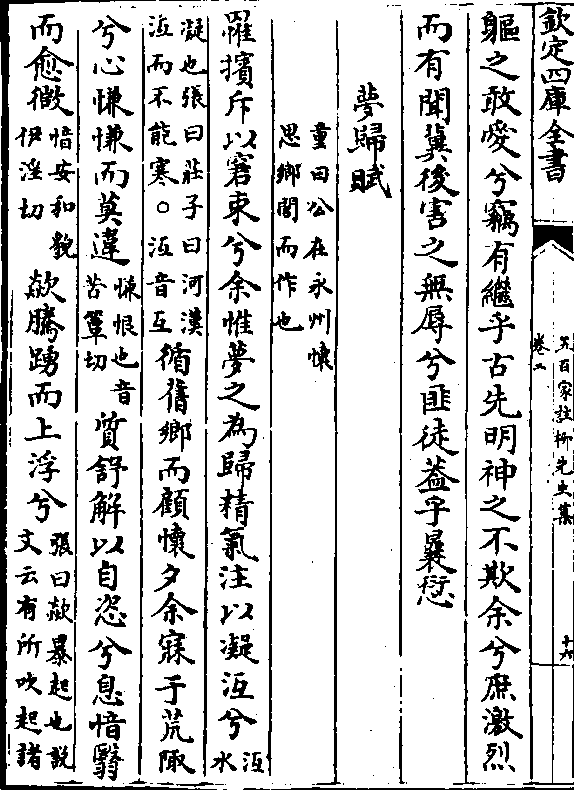 欽定四庫全書
五百家註柳先生集
卷二
十六
軀之敢愛兮竊有繼乎古先明神之不欺余兮庶激烈
而有聞冀後害之無辱兮匪徒蓋乎曩愆
夢歸賦
童曰公在永州懷
思鄉閭而作也
羅擯斥以窘束兮余惟夢之為歸精氣注以凝沍兮
沍
水
凝也張曰莊子曰河漢
沍而不能寒○沍音互
循舊鄉而顧懷夕余寐于荒陬
兮心慊慊而莫違
慊恨也音
苦簟切
質舒解以自恣兮息愔翳
而愈微
愔安和貌
伊淫切
歘騰踴而上浮兮
張曰歘暴起也說
文云有所吹起諸